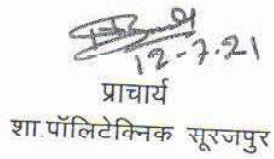 12-7.21
प्राचार्य
शा.पॉलिटेक्निक सूरजपुर